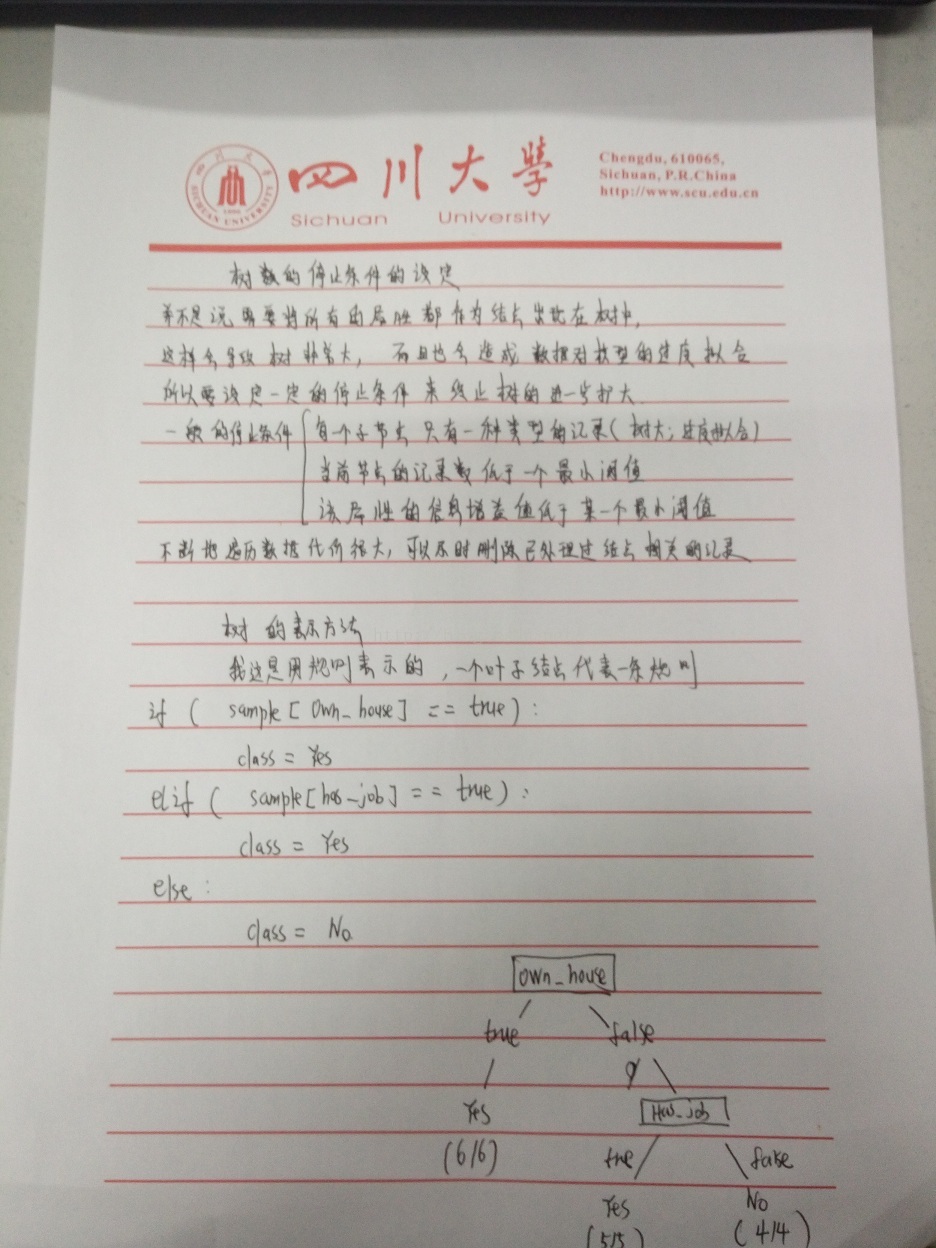 四川大學
Sichuan University
SICHUAN UNIVERSITY
1896
Chengdu, 610065,
Sichuan, P.R.China
http://www.scu.edu.cn
树数的停止条件的设定
并不是说需要将所有的属性都作为结点出现在树中,
这样会导致树非常大, 而且也会造成数据对模型的过度拟合
所以要设定一定的停止条件来终止树的进一步扩大
一般的停止条件
每一个子节点只有一种类型的记录(树大;过度拟合)
当前节点的记录数低于一个最小阈值
该属性的信息增益值低于某一个最小阈值
不断地遍历数据代价很大, 可以及时删除已处理过结点相关的记录
树的表示方法
我这是用规则表示的, 一个叶子结点代表一条规则
if ( sample[ Own_house] == true) :
class = Yes
elif ( sample[has_job] == true) :
class = Yes
else :
class = No
Own_house
true false
Yes Has_job
(6/6) true false
Yes No
(5/5) (4/4)